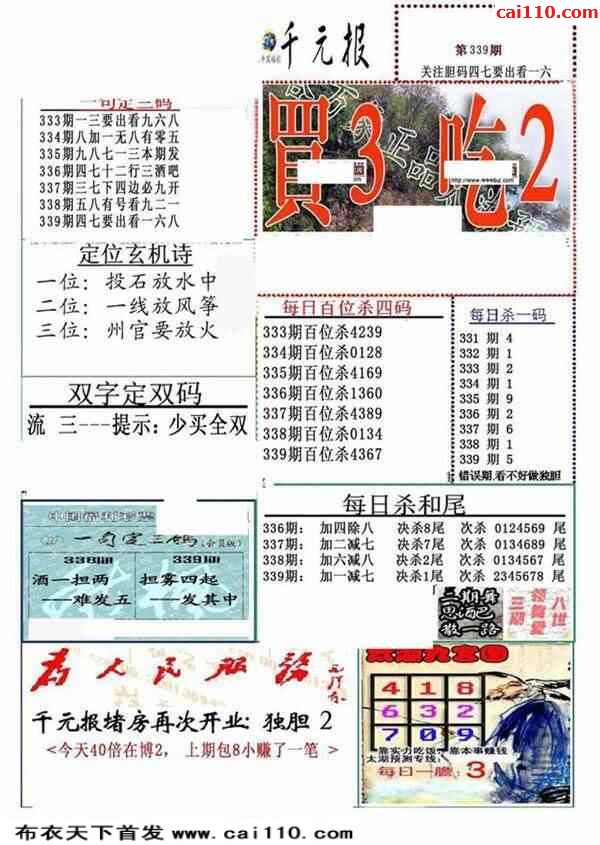 cai110.com
千元报
第339期
关注胆码四七要出看一六
一句定三码
333期一三要出看九六八
334期八加一无八有零五
335期九八七一三本期发
336期四七十二行三酒吧
337期三七下四边必九开
338期五八有号看九二一
339期四七要出看一六八
買3 吃2
定位玄机诗
一位：投石放水中
二位：一线放风筝
三位：州官要放火
每日百位杀四码
333期百位杀4239
334期百位杀0128
335期百位杀4169
336期百位杀1360
337期百位杀4389
338期百位杀0134
339期百位杀4367
每日杀一码
331 期 4
332 期 1
333 期 2
334 期 1
335 期 9
336 期 2
337 期 6
338 期 1
339 期 5
错误期,看不好做独胆
双字定双码
流 三---提示：少买全双
每日杀和尾
336期： 加四除八 决杀8尾 次杀 0124569 尾
337期： 加二减七 决杀7尾 次杀 0134689 尾
338期： 加六减八 决杀2尾 次杀 0134567 尾
339期： 加一减七 决杀1尾 次杀 2345678 尾
一句定三码(会员版)
338期 339期
酒一担两 担雾四起
——难发五 ——发其中
三期舞
思想已
散一路
为人民服务
千元报堵房再次开业: 独胆 2
<今天40倍在博2， 上期包8小赚了一笔 >
九宫图
4 1 8
6 3 2
7 0 9
靠实力吃饭，靠本事赚钱
太湖预测专线:
每日一胆: 3
布衣天下首发 www.cai110.com